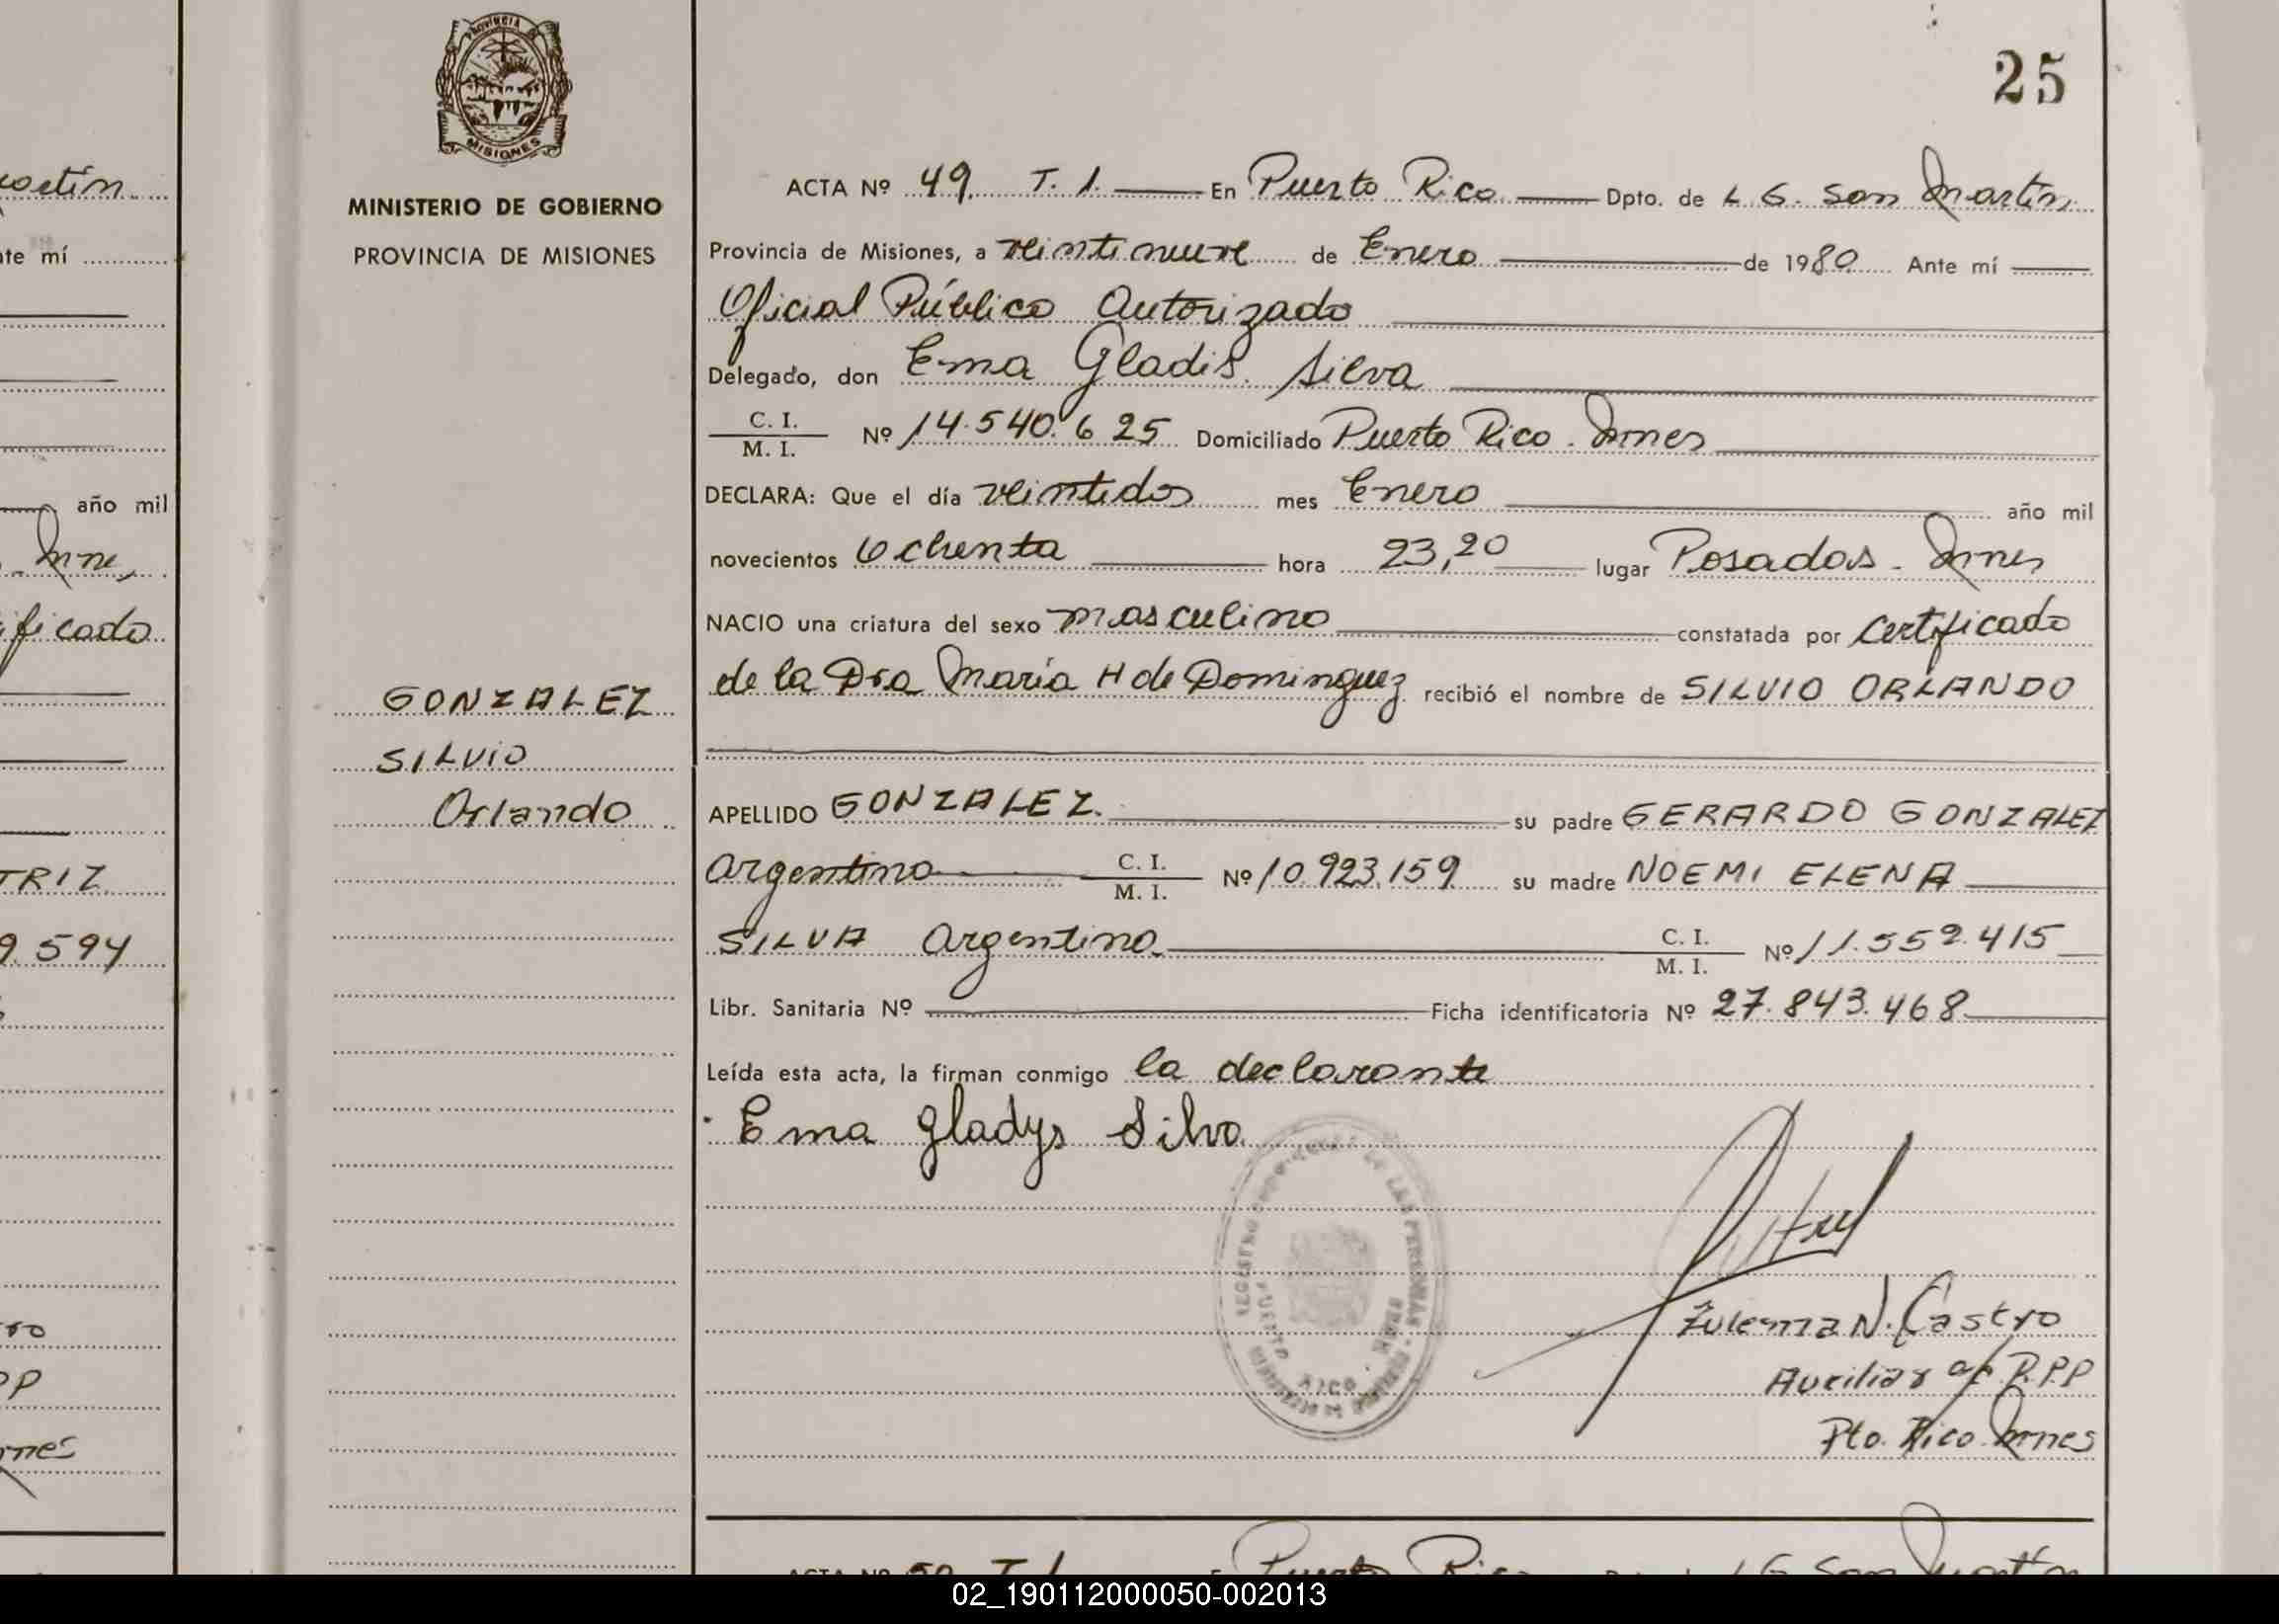 oetín
te mí
año mil
Mne,
ificado
TRIZ
9.594
ro
PP
mnes
PROVINCIA
MISIONES
MINISTERIO DE GOBIERNO
PROVINCIA DE MISIONES
GONZALEZ
SILVIO
Orlando
25
ACTA Nº 49 T. 1. En Puerto Rico Dpto. de L G. San Martín
Provincia de Misiones, a veintinueve de Enero de 1980 Ante mí
Oficial Público Autorizado
Delegado, don Ema Gladis Silva
C. I. / M. I. Nº 14.540.625 Domiciliado Puerto Rico. Mnes
DECLARA: Que el día veintidos mes Enero año mil
novecientos Ochenta hora 23,20 lugar Posadas - Mnes
NACIO una criatura del sexo masculino constatada por Certificado
de la Dra María H de Dominguez recibió el nombre de SILVIO ORLANDO
APELLIDO GONZALEZ. su padre GERARDO GONZALEZ
Argentino C. I. / M. I. Nº 10.923.159 su madre NOEMI ELENA
SILVA Argentina C. I. / M. I. Nº 11.552.415
Libr. Sanitaria Nº Ficha identificatoria Nº 27.843.468
Leída esta acta, la firman conmigo la declarante
Ema Gladys Silva
REGISTRO PROVINCIAL DE LAS PERSONAS
PUERTO RICO
Zulema N. Castro
Auxiliar a/c R.P.P
Pto. Rico Mnes
ACTA Nº 50 T. 1 En Puerto Rico Dpto. de L G San Martín
02_190112000050-002013